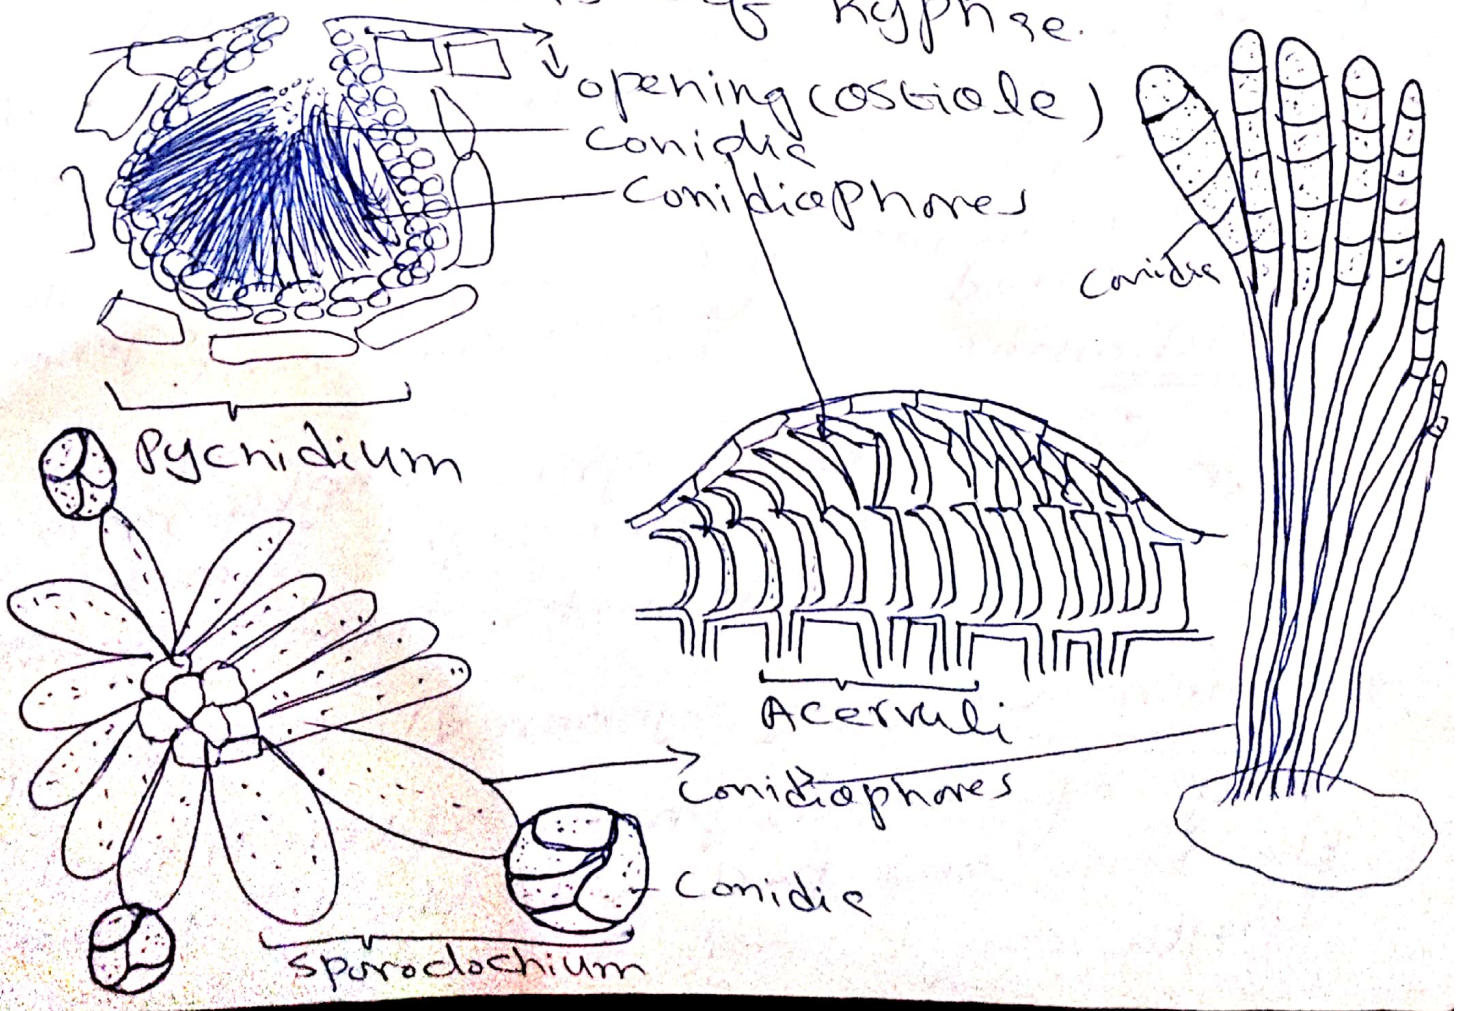 of Hyphae.
opening (ostiole)
Conidia
Conidiophores
Conidia
Pycnidium
Acervuli
Conidiophores
Conidia
Sporodochium